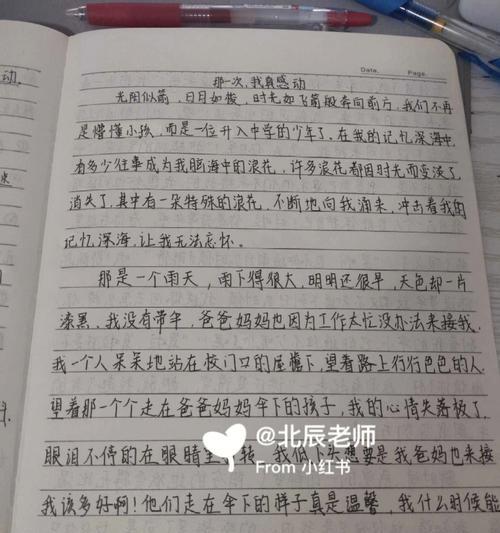 Date.
那一次,我真感动
光阴似箭,日月如梭,时光如飞箭般奔向前方,我们不再
是懵懂小孩,而是一位升入中学的少年了。在我的记忆深海中,
有多少往事成为我脑海中的浪花,许多浪花都因时光而变淡了,
消失了,其中有一朵特殊的浪花,不断地向我涌来,冲击着我的
记忆深海,让我无法忘怀。
那是一个雨天,雨下得很大,明明还很早,天色却一片
漆黑,我没有带伞,爸爸妈妈也因为工作太忙没办法来接我,
我一个人呆呆地站在校门口的屋檐下,望着路上行行色色的人,
望着那一个个走在爸爸妈妈伞下的孩子,我的心情失落极了,
眼泪不停的在眼睛里 转,我低下头想要是我爸妈也来接
我该多好啊!他们走在伞下的样子真是温馨,我什么时候能
动.
@北辰老师
From 小红书